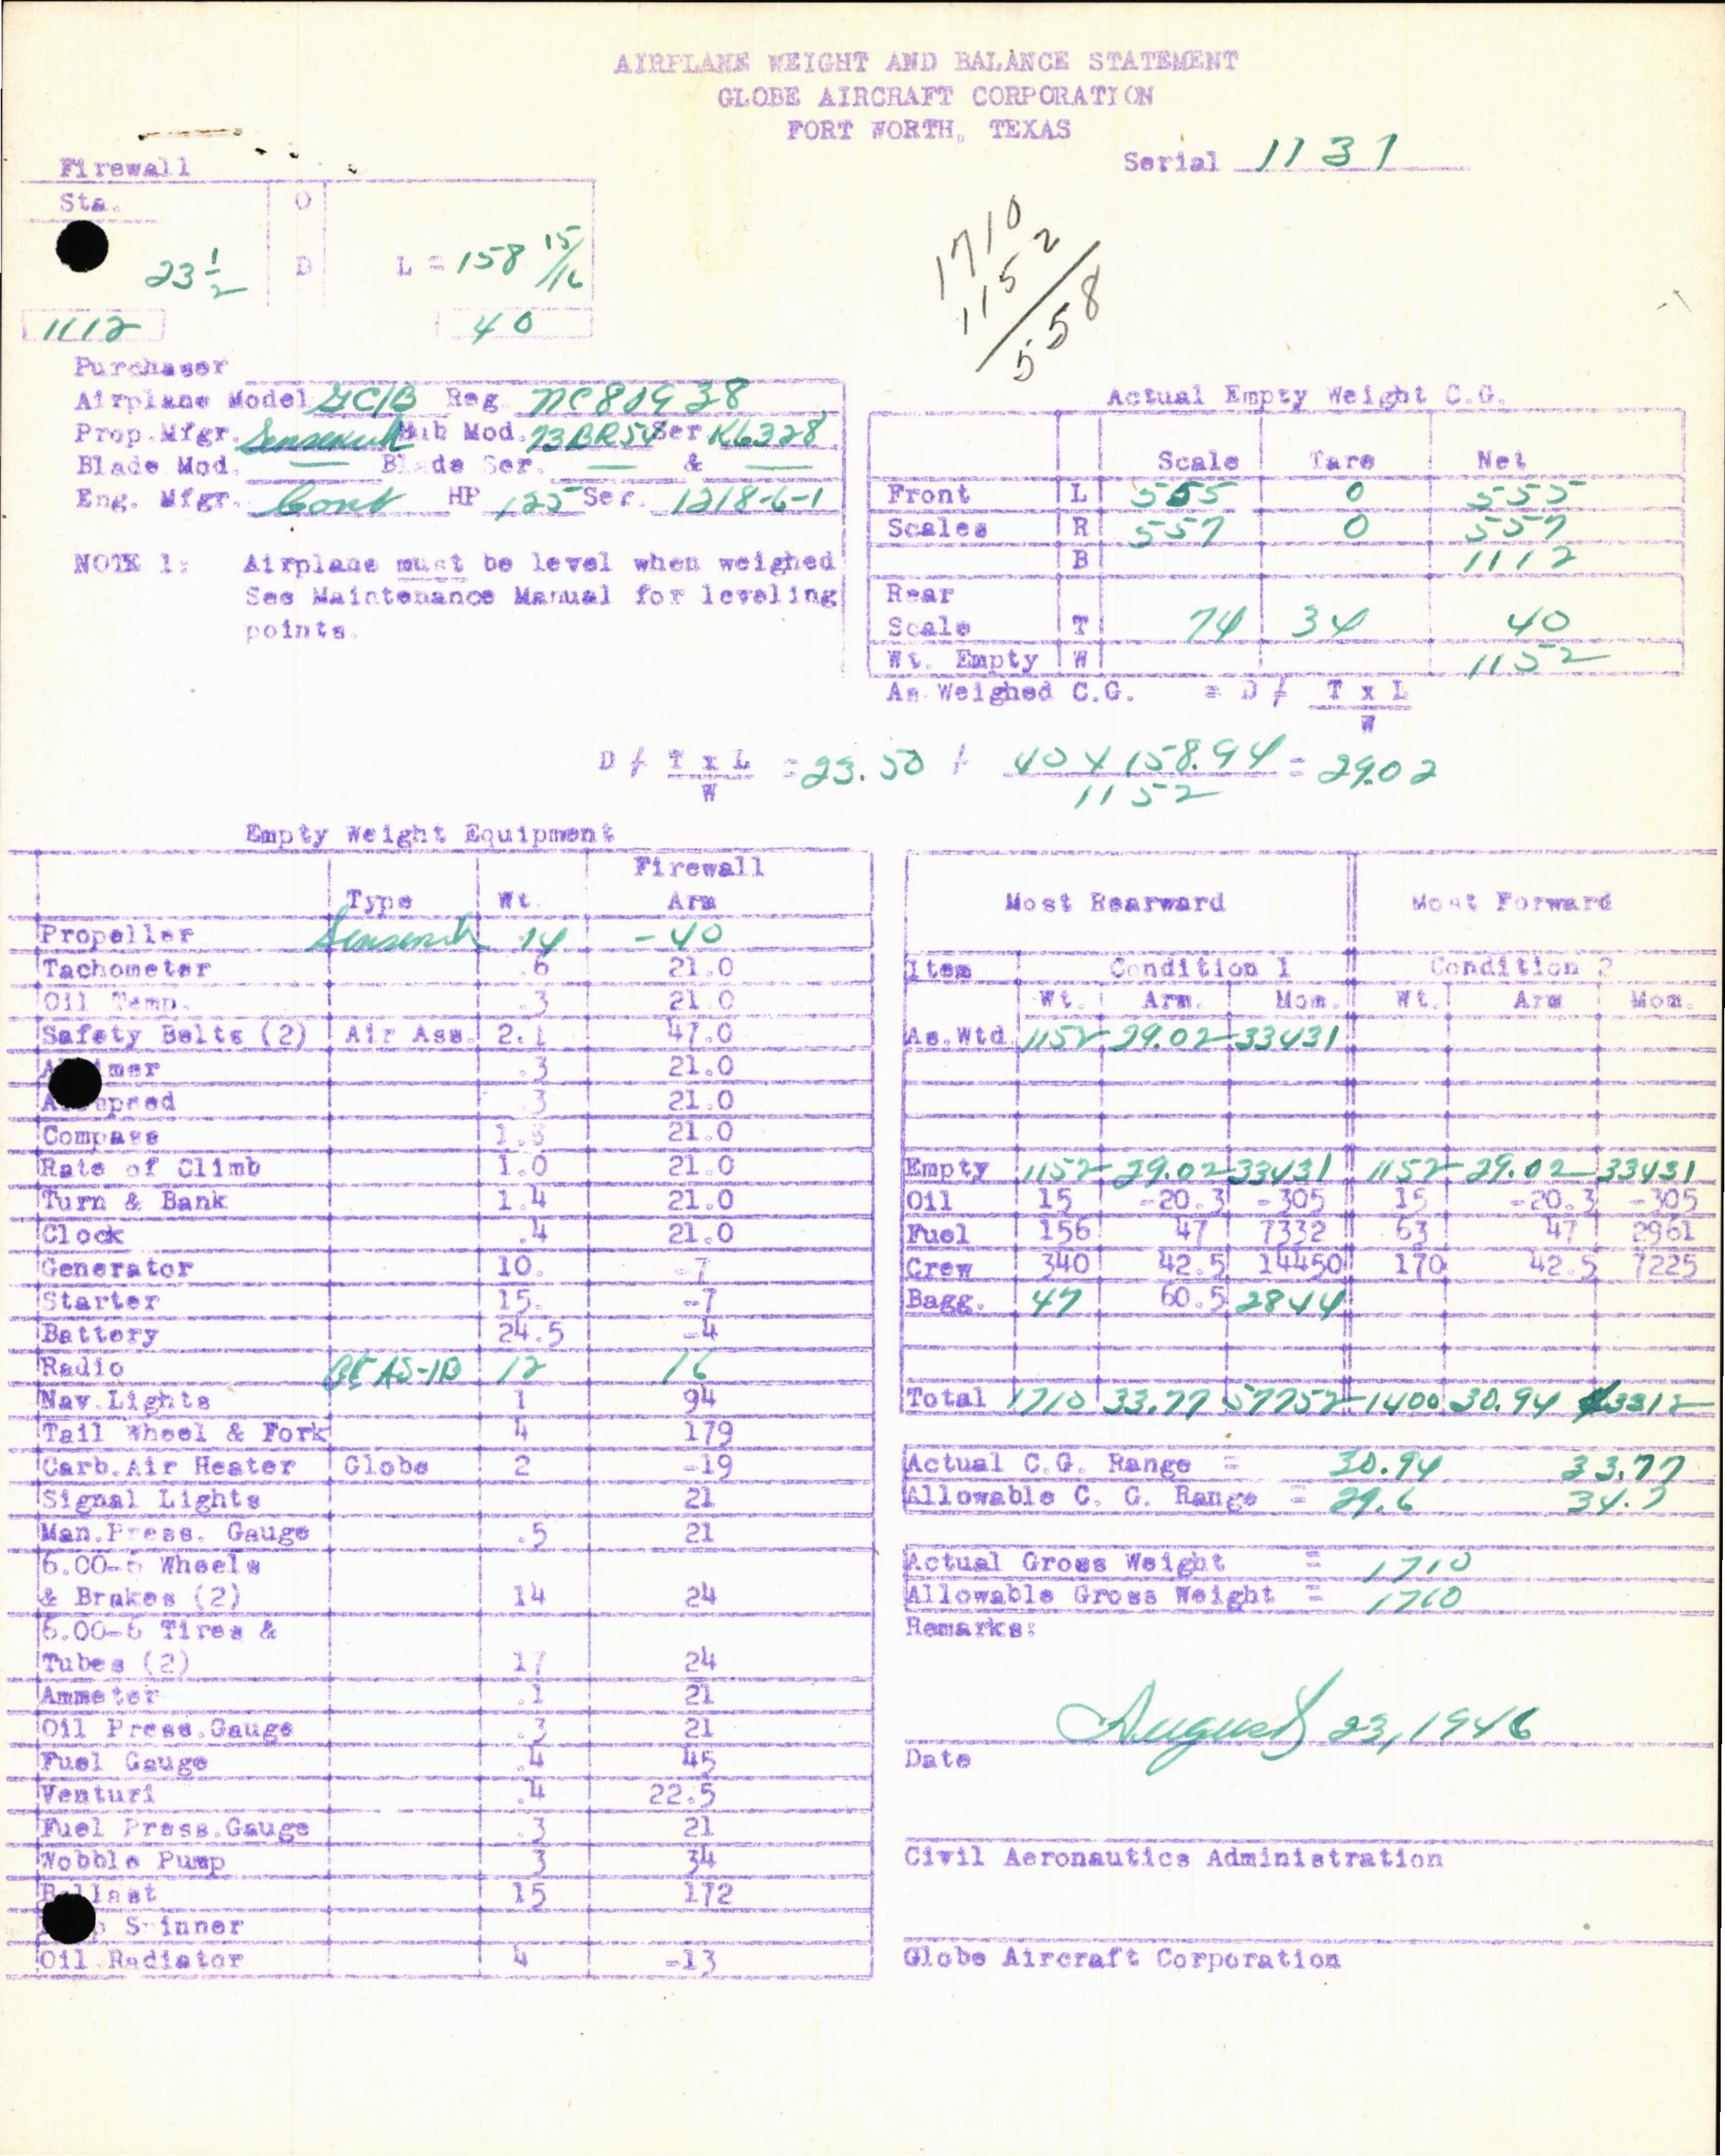 AIRPLANE WEIGHT AND BALANCE STATEMENT
GLOBE AIRCRAFT CORPORATION
FORT WORTH, TEXAS
Serial 1131
Firewall
Sta. O
23 1/2 D L = 158 15/16
1112 40
1710
1152
558
Purchaser
Airplane Model GC1B Reg. NC80938
Prop.Mfgr. Sensenich Hub Mod. 73BR54 Ser K6328
Blade Mod. — Blade Ser. — & —
Eng. Mfgr. Cont HP 125 Ser. 1218-6-1
NOTE 1: Airplane must be level when weighed
See Maintenance Manual for leveling
points.
Actual Empty Weight C.G.
Scale Tare Net
Front L 555 0 555
Scales R 557 0 557
B 1112
Rear
Scale T 74 34 40
Wt. Empty W 1152
As Weighed C.G. = D / T x L
W
D / T x L = 23.50 / 40 x 158.94 = 29.02
W 1152
Empty Weight Equipment
Firewall
Type Wt. Arm
Propeller Sensenich 14 -40
Tachometer .6 21.0
Oil Temp. .3 21.0
Safety Belts (2) Air Ass. 2.1 47.0
.3 21.0
.3 21.0
Compass 1.8 21.0
Rate of Climb 1.0 21.0
Turn & Bank 1.4 21.0
Clock .4 21.0
Generator 10. -7
Starter 15. -7
Battery 24.5 -4
Radio GE AS-1B 12 16
Nav.Lights 1 94
Tail Wheel & Fork 4 179
Carb.Air Heater Globe 2 -19
Signal Lights 21
Man.Press. Gauge .5 21
6.00-6 Wheels
& Brakes (2) 14 24
6.00-6 Tires &
Tubes (2) 17 24
Ammeter .1 21
Oil Press.Gauge .3 21
Fuel Gauge .4 45
Venturi .4 22.5
Fuel Press.Gauge .3 21
Wobble Pump 3 34
Ballast 15 172
Spinner
Oil Radiator 4 -13
Most Rearward Most Forward
Item Condition 1 Condition 2
Wt. Arm. Mom. Wt. Arm Mom.
As.Wtd 1152 29.02 33431
Empty 1152 29.02 33431 1152 29.02 33431
Oil 15 -20.3 -305 15 -20.3 -305
Fuel 156 47 7332 63 47 2961
Crew 340 42.5 14450 170 42.5 7225
Bagg. 47 60.5 2844
Total 1710 33.77 57752 1400 30.94 43312
Actual C.G. Range = 30.94 33.77
Allowable C. G. Range = 29.6
Actual Gross Weight = 1710
Allowable Gross Weight = 1710
Remarks:
August 23, 1946
Date
Civil Aeronautics Administration
Globe Aircraft Corporation